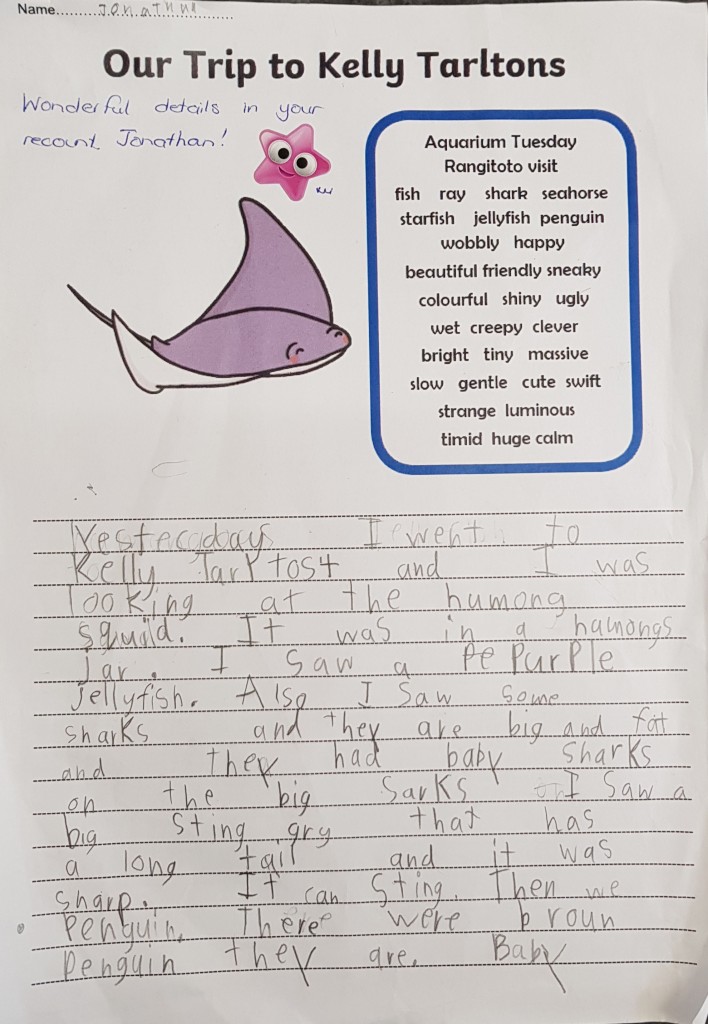 Name.......... Jonathan
Our Trip to Kelly Tarltons
Wonderful details in your
recount Jonathan!
Aquarium Tuesday
Rangitoto visit
fish ray shark seahorse
starfish jellyfish penguin
wobbly happy
beautiful friendly sneaky
colourful shiny ugly
wet creepy clever
bright tiny massive
slow gentle cute swift
strange luminous
timid huge calm
I went to
Kelly Tarltost and I was
looking at the humong
squid. It was in a humongs
jar. I saw a Pe PurPle
jellyfish. Also I saw some
sharks and they are big and fat
and they had baby sharks
on the big sarks I saw a
big Sting gry that has
a long tail and it was
sharp. It can Sting. Then we
Penguin. There were broun
Penguin they are. Baby